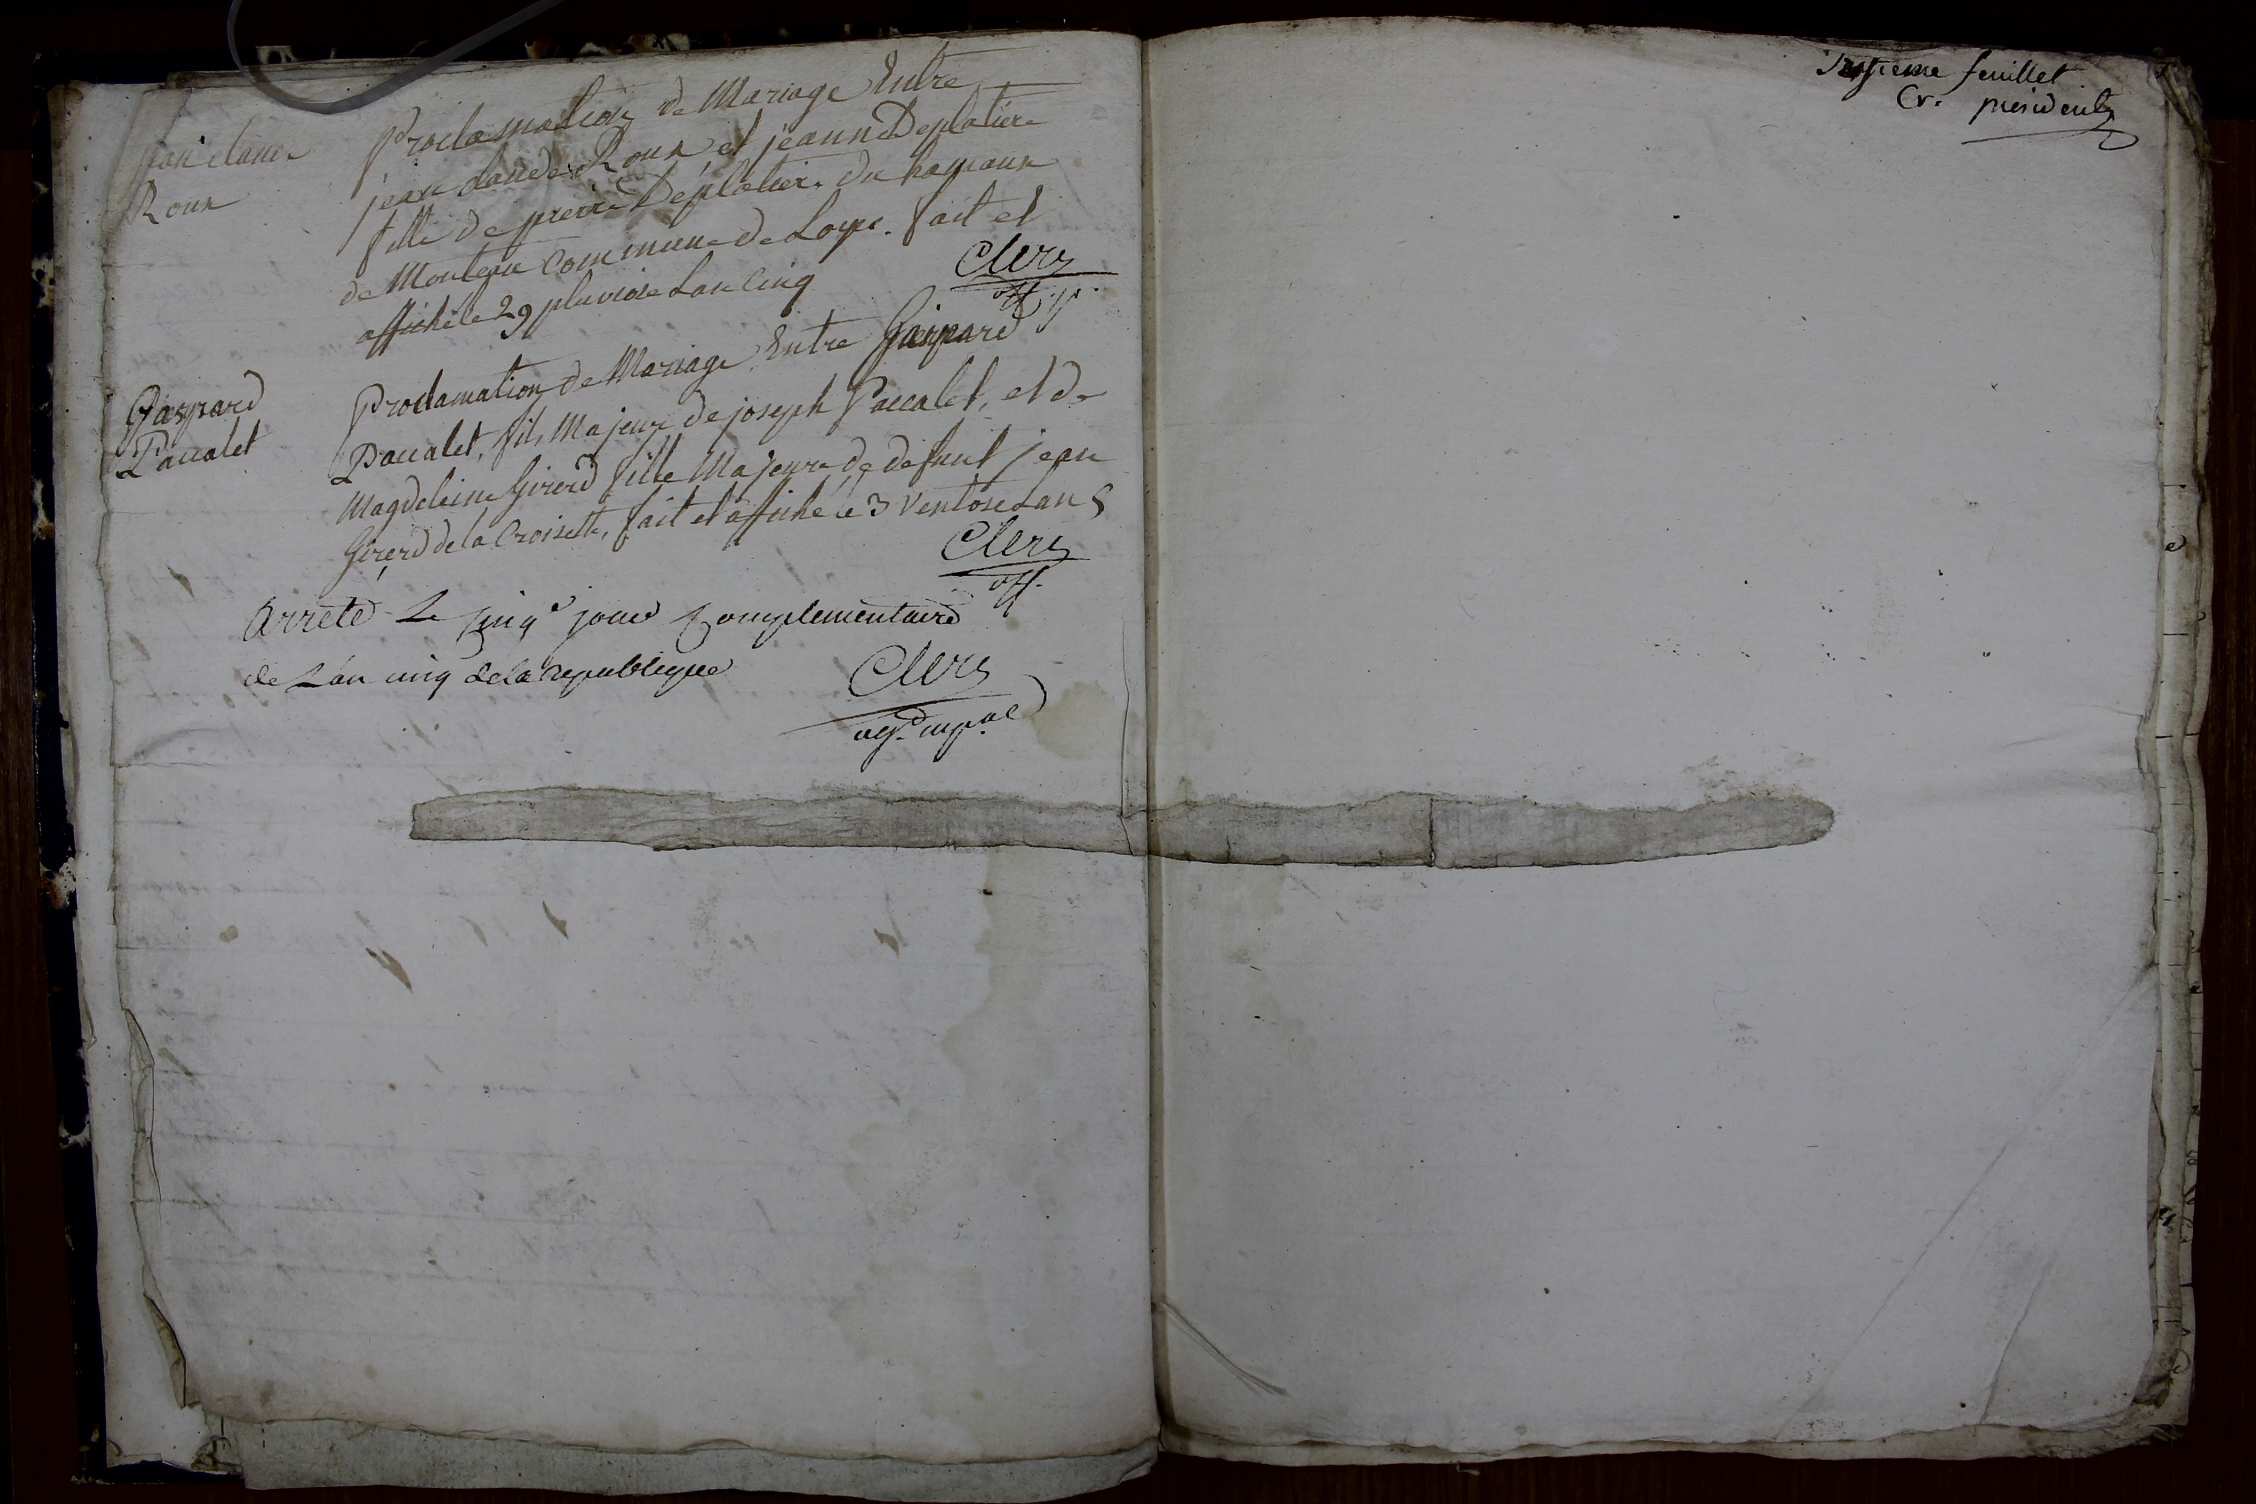 jean claude
Roux
Proclamation de Mariage Entre
jean claude Roux et jeanne Deplatiere
fille de pierre Deplatier. du hameaux
de Montezui Commune de Loyes. fait et
affiché le 29 pluviose Lan Cinq
Clerc
off. p.
Gaspard
Paccalet
Proclamation de Mariage Entre Gaspard
Paccalet, fils Majeur de joseph Paccalet, et de
Magdeleine Girerd fille Majeure de defunt jean
Girerd de la Croisette, fait et affiché le 3 Ventose Lan 5
Clerc
off.
Arreté Le Cinqe jour Complementaire
de Lan cinq de la republique
Clerc
agt. mpal
Troisieme feuillet
president